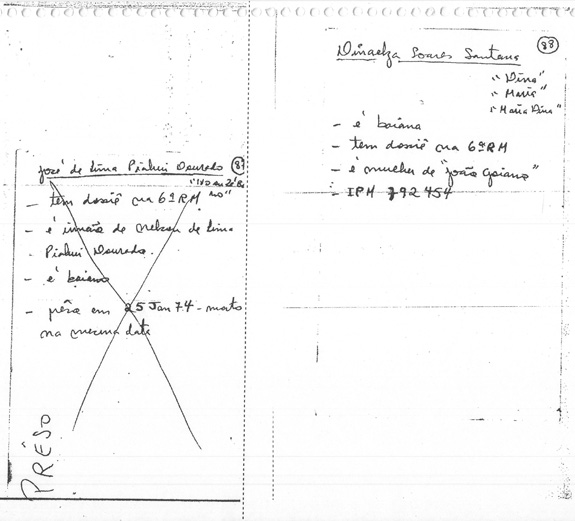 José de Lima Piahui Dourado
- tem dossiê na 6ª RM
- é irmão de Nelson de Lima
Piahui Dourado.
- é baiano
- prêso em 25 Jan 74 - morto
na mesma data
PRÊSO
88
Dinaelza Soares Santana
"Dina"
"Maria"
"Maria Dina"
- é baiana
- tem dossiê na 6ª RM
- é mulher de "João Goiano"
- IPM 792 454